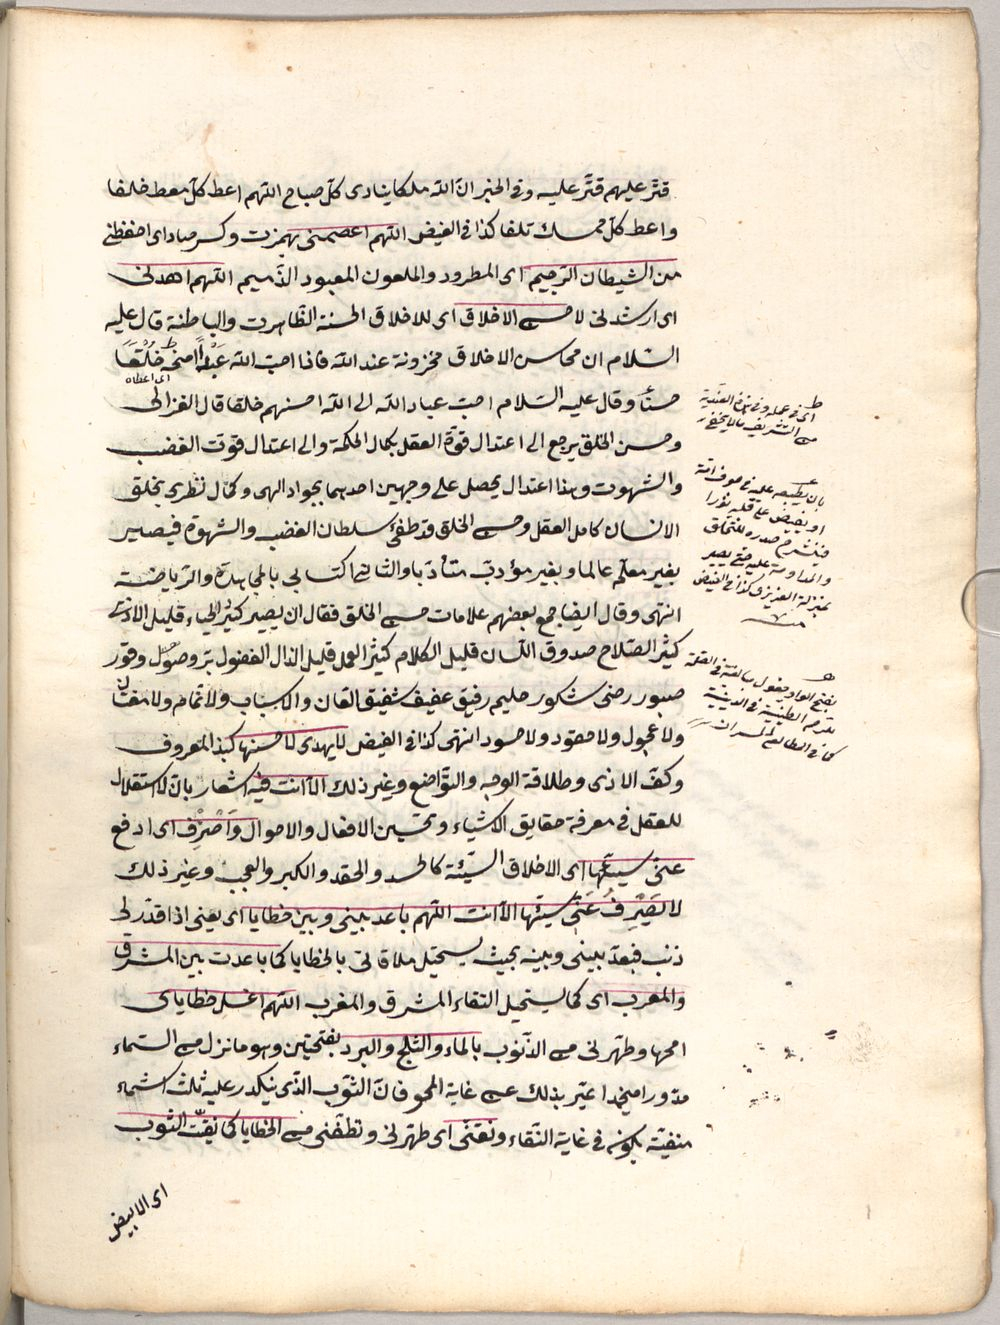 قتر عليهم قتر عليه وفى الخبر ان الله ملكا ينادى كل صباح اللهم اعط كل معط خلفا
واعط كل ممسك تلفا كذا فى الفيض اللهم اعصمنى بهمزت وكسر صاد اى احفظنى
من الشيطان الرجيم اى المطرود والملعون المعبود الذميم اللهم اهدنى
اى ارشدنى لاحسن الاخلاق اى للاخلاق الحسنة الظاهرت والباطنة قال عليه
السلام ان محاسن الاخلاق مخزونة عند الله فاذا احب الله عبدا امنحه خلقا
اى اعطاه
حسنا وقال عليه السلام احب عباد الله الى الله احسنهم خلقا قال الغزالى
وحسن الخلق يرجع الى اعتدال قوة العقل بكمال الحكمة والى اعتدال قوت الغضب
والشهوت وهذا اعتدال يحصل على وجهين احدهما بجواد الهى وكمال نظرى بخلق
الانسان كامل العقل وحسن الخلق قد طفئ سلطان الغضب والشهوة فيصير
بغير معلم عالما وبغير مؤدب متأدبا والثانى اكتسابى بالمجاهدة والرياضة
انتهى وقال ايضا جمع بعضهم علامات حسن الخلق فقال ان يصير كثير الحياء قليل الاذى
كثير الصلاح صدوق اللسان قليل الكلام كثير العمل قليل الذال الفضول بر وصول وقور
صبور رضى شكور حليم رفيق عفيف شفيق لا لعان ولا سباب ولا نمام ولا مغتاب
ولا عجول ولا حقود ولا حسود انتهى كذا فى الفيض لا يهدى لاحسنها كبذ المعروف
وكف الاذى وطلاقة الوجه والتواضع وغير ذلك الا انت فيه اشعار بان لا استقلال
للعقل فى معرفة حقايق الاشياء وتحسين الافعال والاحوال واصرف اى ادفع
عنى سيئها اى الاخلاق السيئة كالحسد والحقد والكبر والعجب وغير ذلك
لا يصرف عنى سيئها الا انت اللهم باعد بينى وبين خطاياى يعنى اذا قدر لى
ذنب فبعد بينى وبينه بحيث يستحيل ملاقاتى بالخطايا كما باعدت بين المشرق
والمغرب اى كما يستحيل التقاء المشرق والمغرب اللهم اغسل خطاياى
امحها وطهرنى من الذنوب بالماء والثلج والبرد بفتحتين وهو ما نزل من السماء
مدورا منجمدا عبر بذلك عن غاية المحو فان الثوب الذى يتكدر عليه ثلث اشياء
منقية يكون فى غاية النقاء ونقنى اى طهرنى ونظفنى من الخطايا كما نقيت الثوب
اى الابيض
اى فى عمله وفى هذه العندية
من التشريف ما لا يخفى
او يفيض على قلبه نورا
فينشرح صدره للتخلق
والمداومة عليه حتى يصير
بمنزلة الغريزى كذا فى الفيض